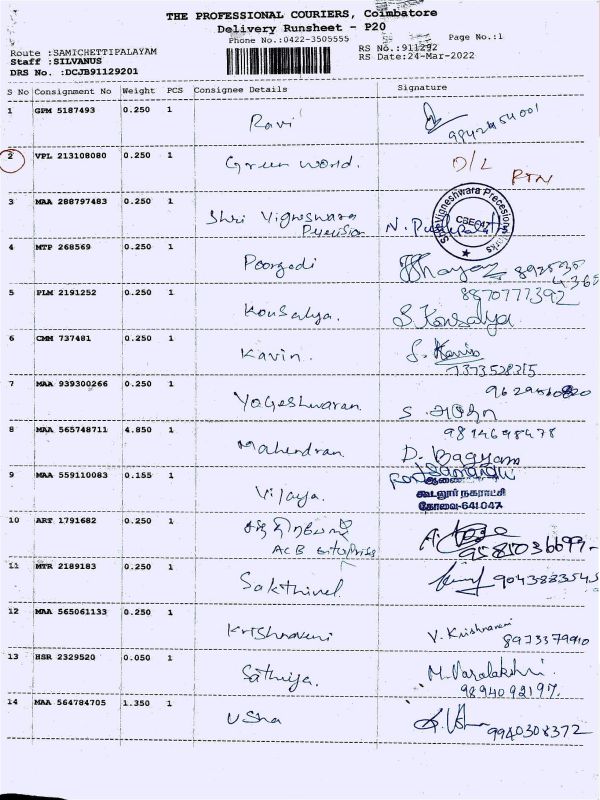 THE PROFESSIONAL COURIERS, Coimbatore
Delivery Runsheet - P20
Phone No.:0422-3505555
Page No.:1
Route :SAMICHETTIPALAYAM
RS No.:911292
Staff :SILVANUS
RS Date:24-Mar-2022
DRS No. :DCJB91129201
S No Consignment No Weight PCS Consignee Details Signature
1 GPM 5187493 0.250 1 Ravi
2 VPL 213108080 0.250 1 Green World. O/L
RTN
3 MAA 288797483 0.250 1 Shri Vigneswara
Precision
CBE
4 MTP 268569 0.250 1 Poongodi
5 PLM 2191252 0.250 1 Kousalya. 8870777392
S. Kousalya
6 CMM 737481 0.250 1 Kavin.
7373528315
7 MAA 939300266 0.250 1 Yogeshwaran.
8 MAA 565748711 4.850 1 Mahendran. 9814698478
D. Bagyam
9 MAA 559110083 0.155 1 Vijaya.
ஆணையர்
கூடலூர் நகராட்சி
கோவை-641047
10 ART 1791682 0.250 1
ACB
11 MTR 2189183 0.250 1 Sakthivel 9043883545
12 MAA 565061133 0.250 1 Krishnaveni V. Krishnaveni
8973379910
13 HSR 2329520 0.050 1 Sathiya. M. Varalakshmi.
9894092197.
14 MAA 564784705 1.350 1 Usha 9940308372